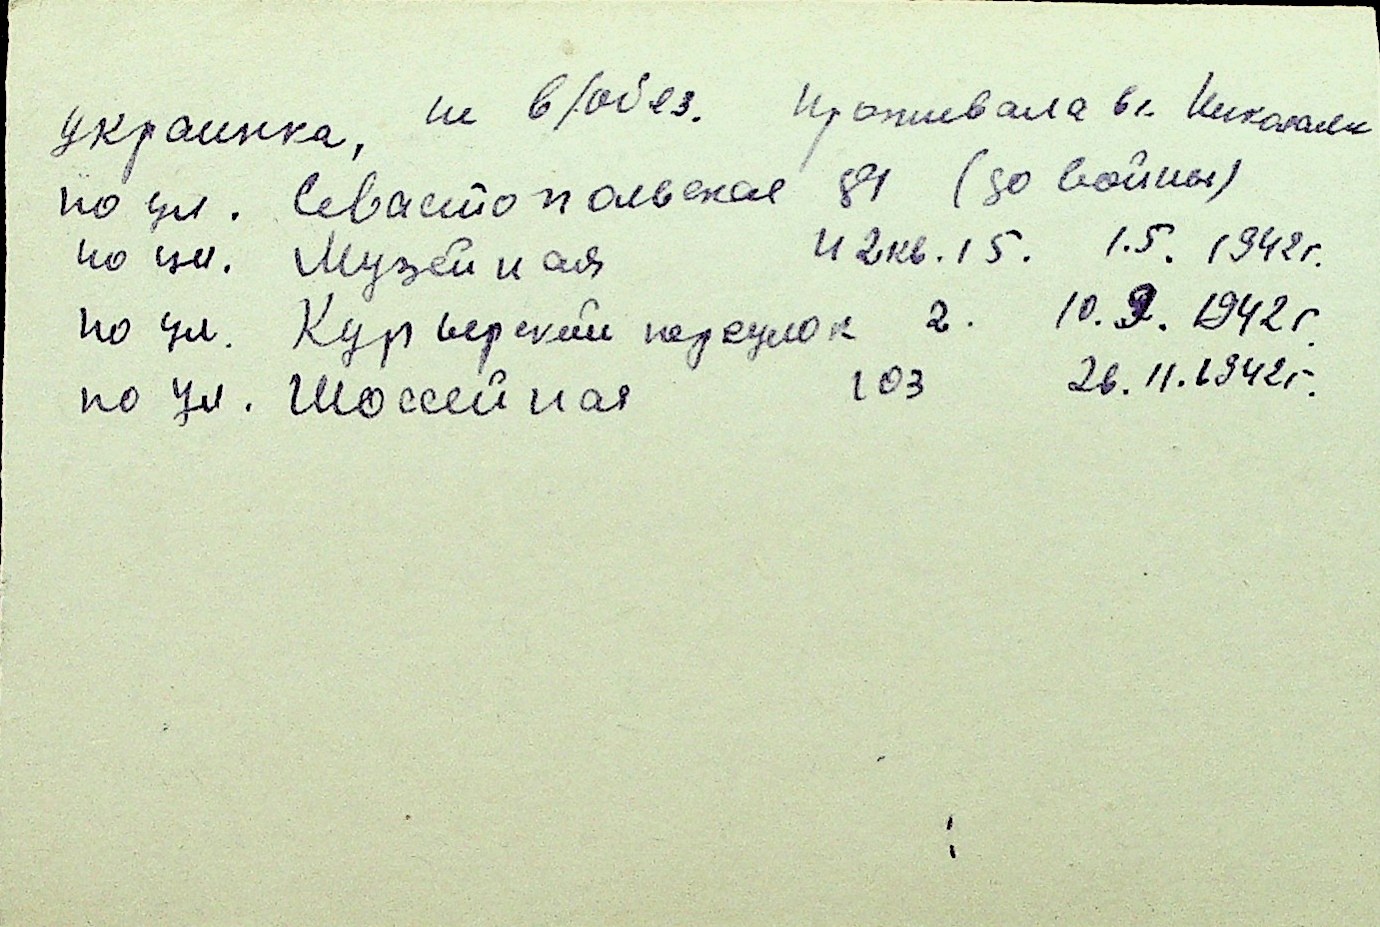 украинка, не в/обяз. Проживала в г. Николаеве
по ул. Севастопольская 84 (до войны)
по ул. Музейная 42 кв. 15. 1.5. 1942 г.
по ул. Курьерский переулок 2. 10.9. 1942 г.
по ул. Шоссейная 103 26.11.1942 г.